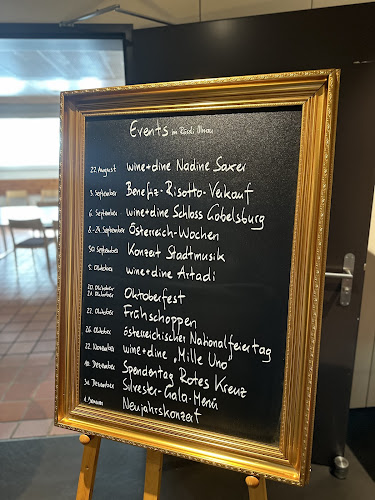 Events im Rössli Illnau
22. August wine+dine Nadine Saxer
3. September Benefiz-Risotto-Verkauf
6. September wine+dine Schloss Gobelsburg
8.-24. September Österreich-Wochen
30. September Konzert Stadtmusik
5. Oktober wine+dine Artadi
20. Oktober
21. Oktober Oktoberfest
22. Oktober Frühschoppen
26. Oktober österreichischer Nationalfeiertag
22. November wine+dine „Mille Uno"
10. Dezember Spendentag Rotes Kreuz
31. Dezember Silvester-Gala-Menü
1. Januar Neujahrskonzert